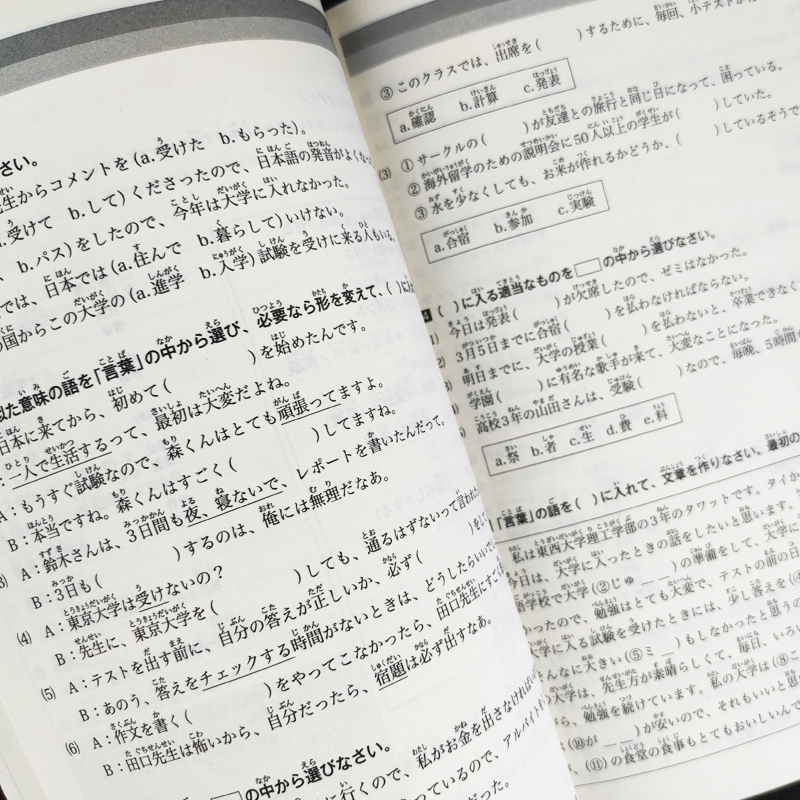 さい。
生からコメントを(a.受けた　b.もらった)。
a.受けて　b.して)くださったので、日本語の発音がよくなっ
、b.パス)をしたので、今年は大学に入れなかった。
では、日本では(a.住んで　b.暮らして)いけない。
の国からこの大学の(a.進学　b.入学)試験を受けに来る人もいる。
似た意味の語を「言葉」の中から選び、必要なら形を変えて、(　)に
日本に来てから、初めて(　　　)を始めたんです。
：一人で生活するって、最初は大変だよね。
A：もうすぐ試験なので、森くんはとても頑張ってますよ。
B：本当ですね。森くんはすごく(　　　)してますね。
A：鈴木さんは、3日間も夜、寝ないで、レポートを書いたんだって。
B：3日も(　　　)するのは、俺には無理だなあ。
(4) A：東京大学は受けないの？
B：先生に、東京大学を(　　　)しても、通るはずないって言われ
(5) A：テストを出す前に、自分の答えが正しいか、必ず(　　　)をし
B：あのう、答えをチェックする時間がないときは、どうしたらいい
(6) A：作文を書く(　　　)をやってこなかったら、田口先生にすごく
B：田口先生は怖いから、自分だったら、宿題は必ず出すなあ。
の中から選びなさい。
に行くので、私がお金を出さなければ
っているので、アルバイト
③ このクラスでは、出席を(　　　)するために、毎回、小テストが
a.確認　b.計算　c.発表
(3) ① サークルの(　　　)が友達との旅行と同じ日になって、困っている。
② 海外留学のための説明会に50人以上の学生が(　　　)していた。
③ 水を少なくしても、お米が作れるかどうか、(　　　)しているそうで
a.合宿　b.参加　c.実験
4 (　)に入る適当なものを□の中から選びなさい。
今日は発表(　　　)が欠席したので、ゼミはなかった。
3月5日までに合宿(　　　)を払わなければならない。
明日までに、大学の授業(　　　)を払わないと、卒業できなく
学園(　　　)に有名な歌手が来て、大変なことになった。
高校3年の山田さんは、受験(　　　)なので、毎晩、5時間
a.祭　b.者　c.生　d.費　e.料
「言葉」の語を(　)に入れて、文章を作りなさい。最初の
私は東西大学理工学部の3年のタワットです。タイか
今日は、大学に入ったときの話をしたいと思います。
語学校で大学(②じゅ＿＿)の準備をして、大学に
かったので、勉強はとても大変で、テストの前の日
大学に入る試験を受けたときには、少し答えを(④
そんなに大きい(⑤ミ＿)もしなかったと思うの
大学は、先生方が素晴らしくて、毎日、いろい
ら、勉強を続けています。私の大学は(⑧こ
(⑩が＿＿)が安いので、それもいいと思い
、(⑪)の食堂の食事もとてもおいしいんで